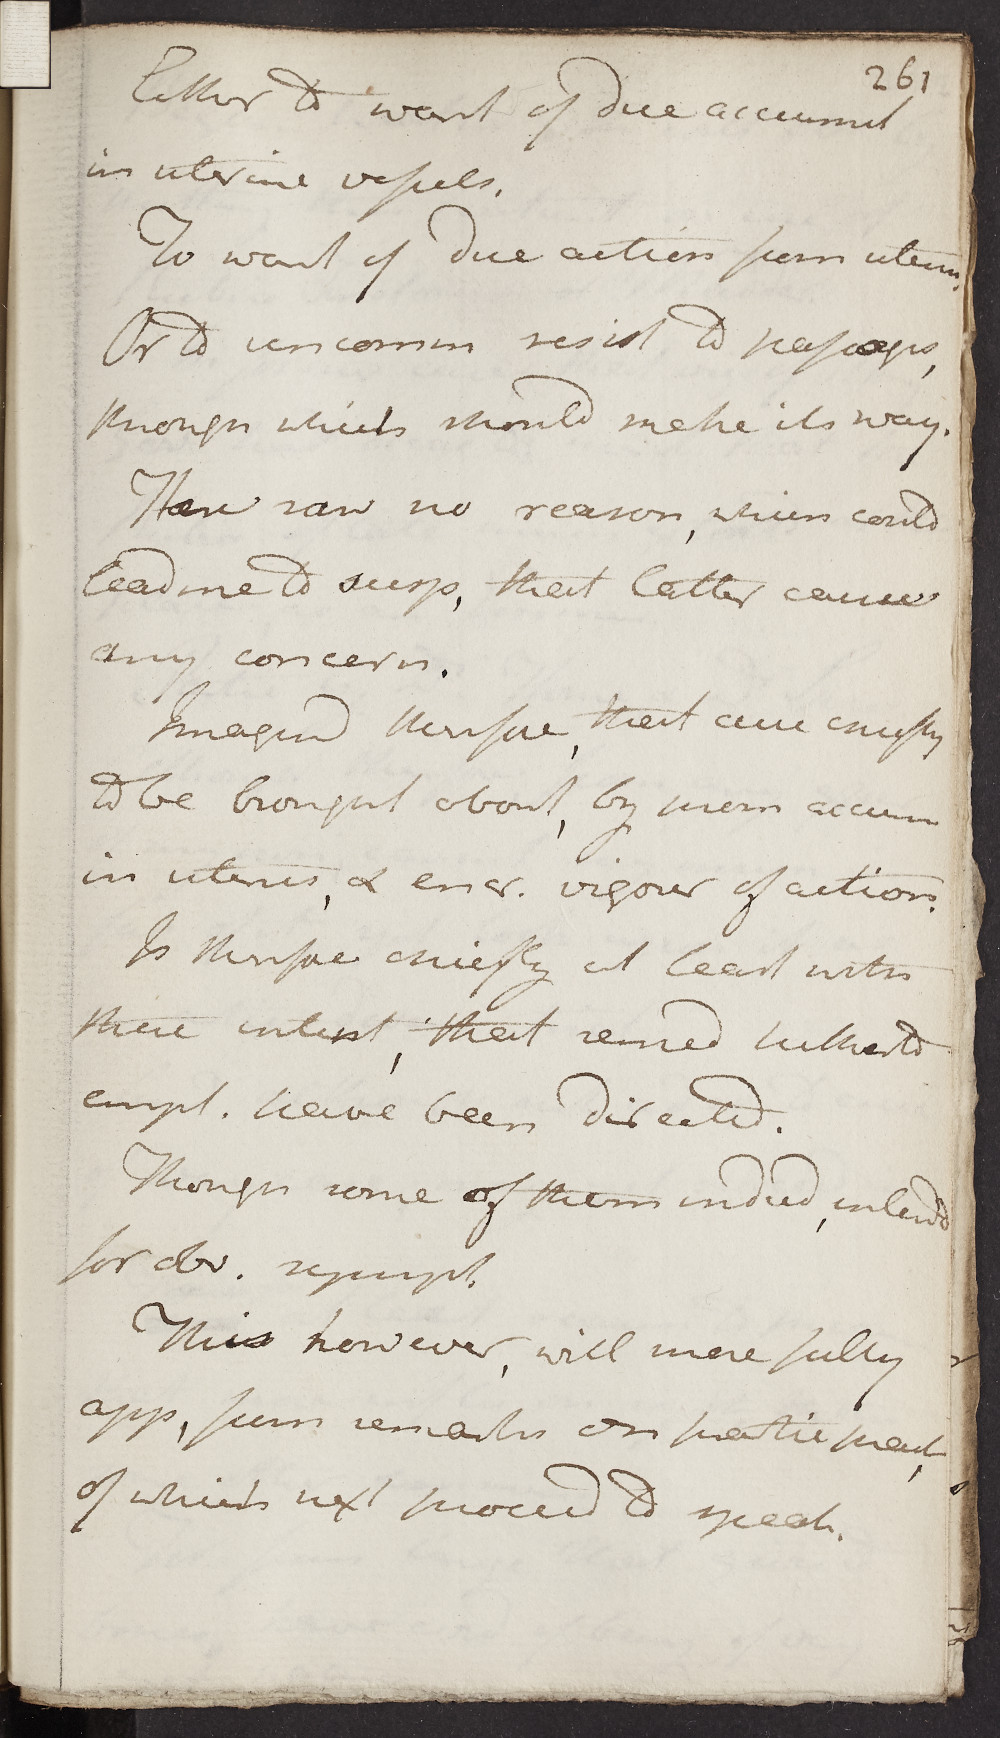 261
Either to want of due accumul
in uterine vessels.
To want of due action from uterus.
Or to uncomm resist to passages,
through which should make its way.
Here saw no reason, which could
lead me to susp, that latter cause
any concern.
Imagind therefore, that cure chiefly
to be brought about, by prom accum
in uterus, & encr. vigour of action.
Is therefore chiefly at least with
these intent, that remed hitherto
empl. have been directed.
Though some of them indeed, intend
for obv. sympt.
This however, will more fully
app, from remarks on partic pract,
of which next proceed to speak.